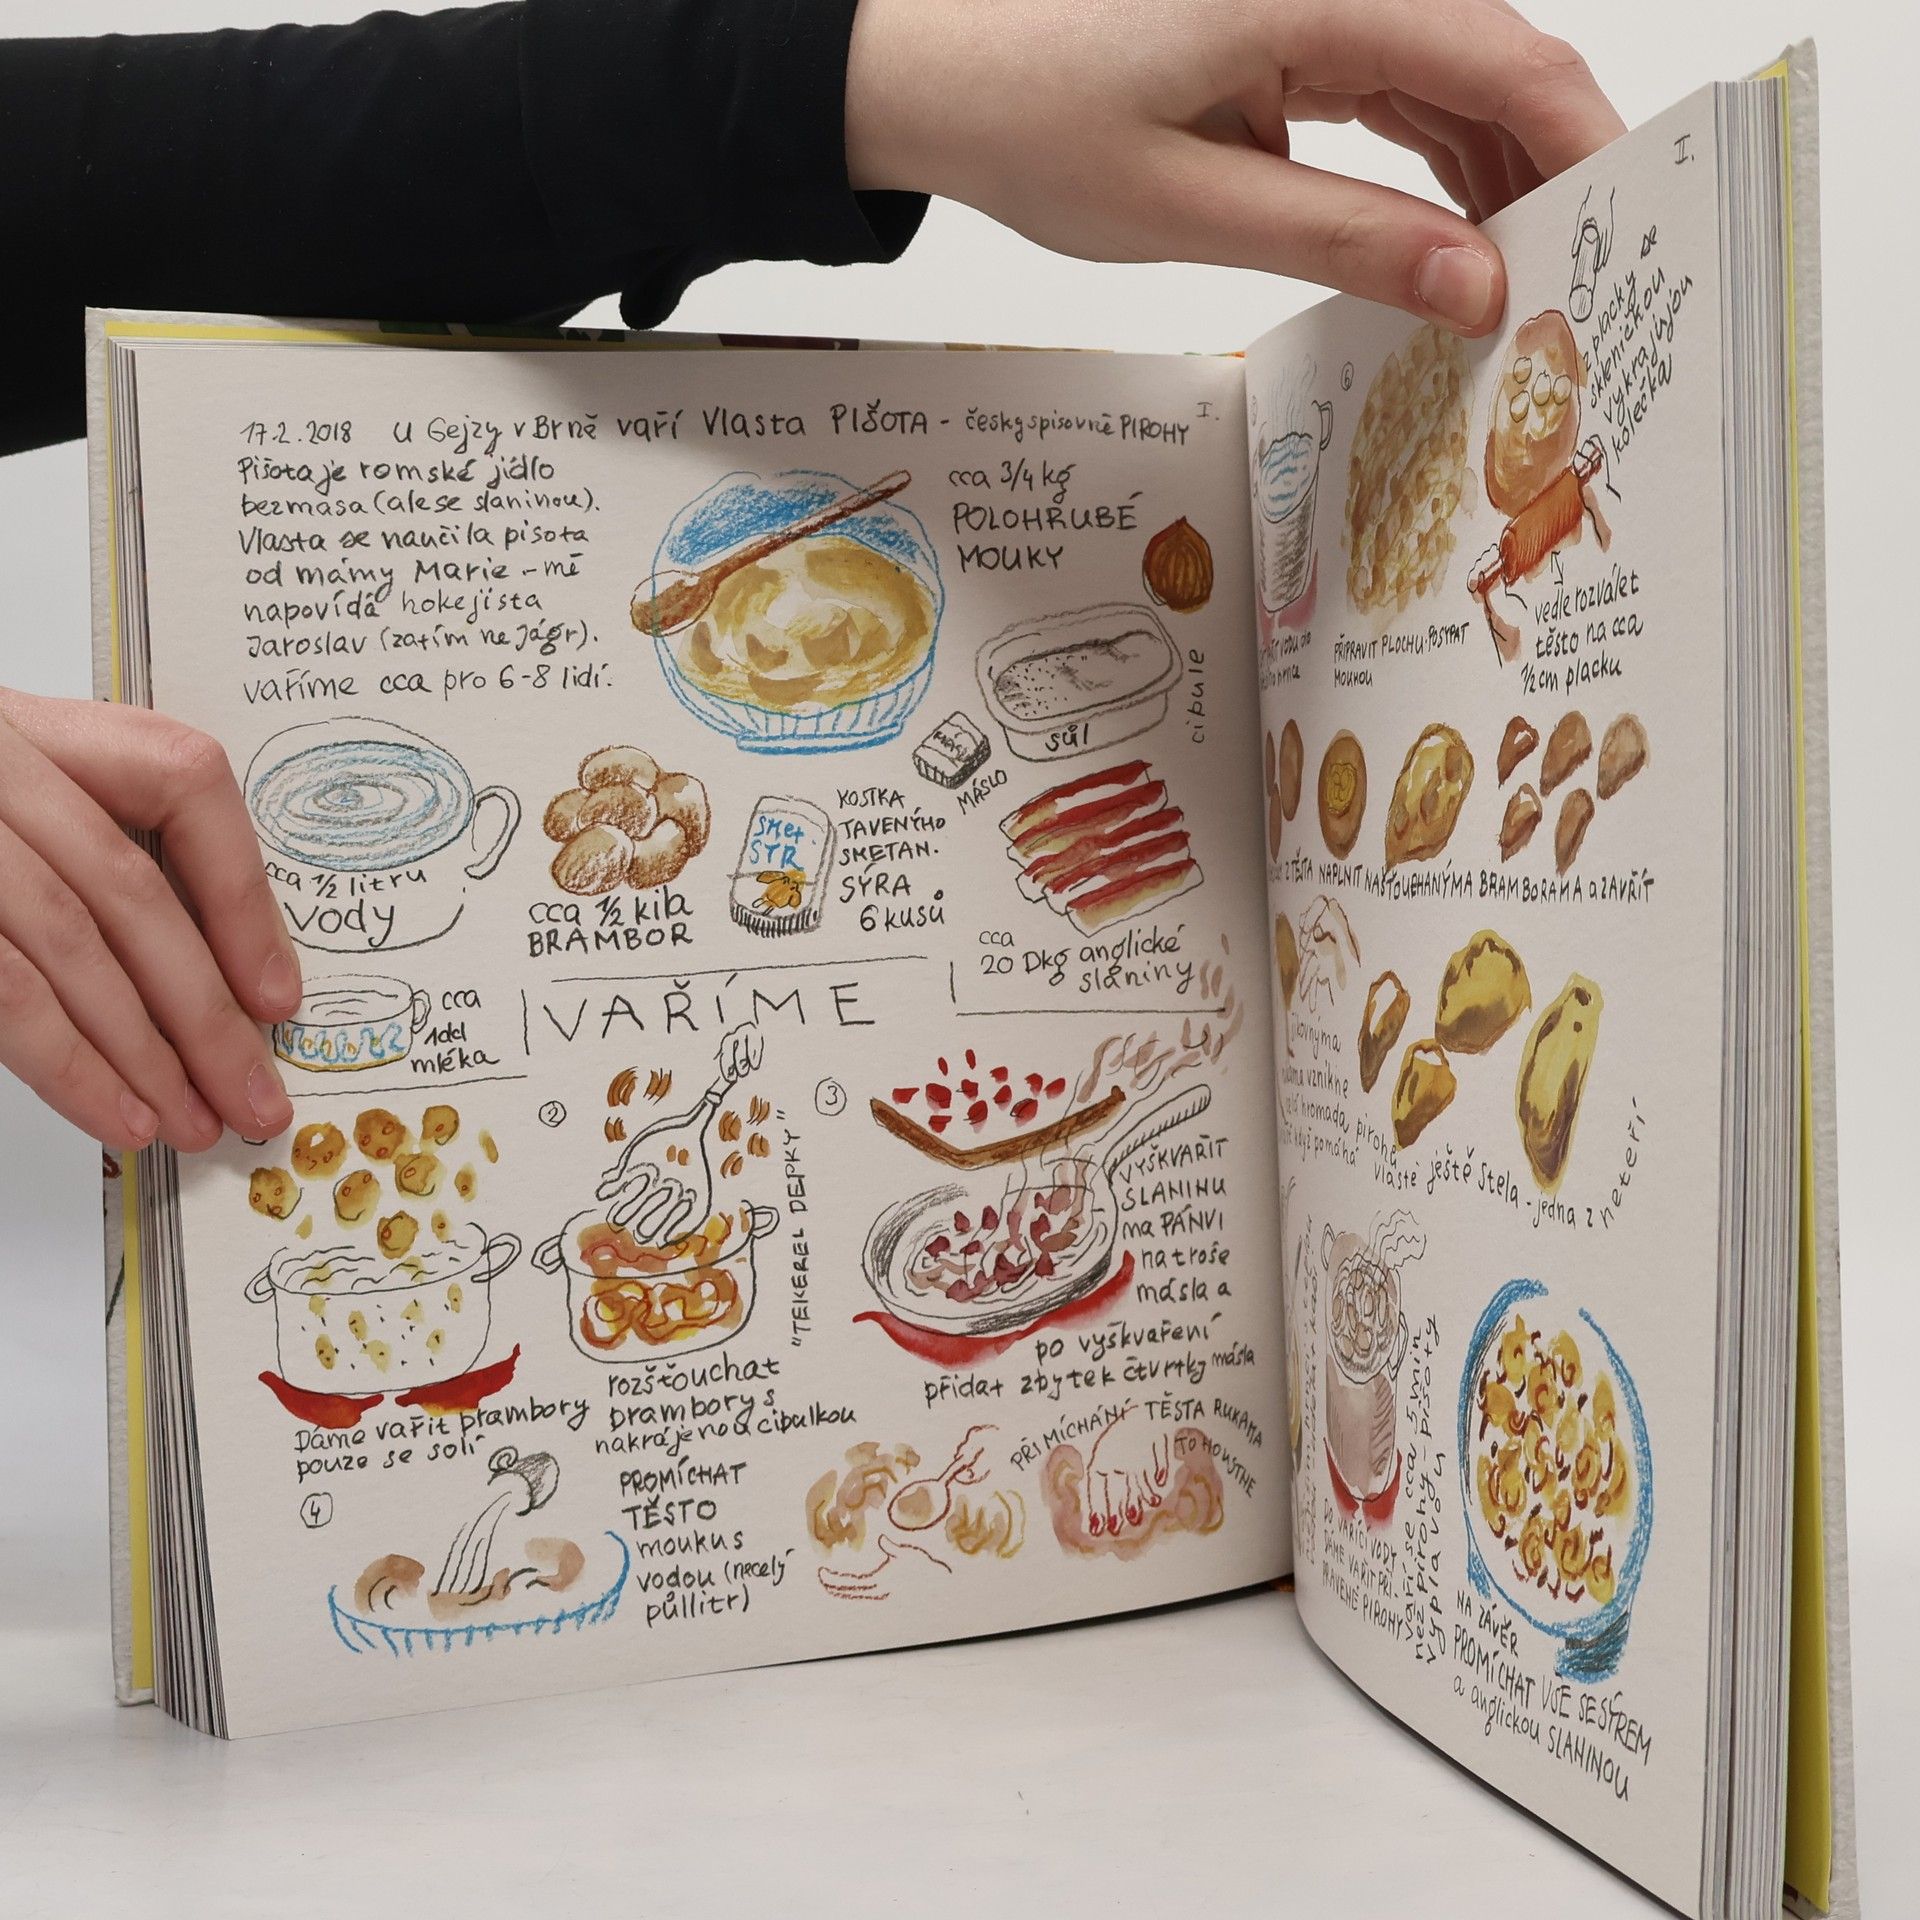 17.2.2018 U Gejzy v Brně vaří Vlasta PIŠOTA - česky spisovně PIROHY
I.
Pišota je romské jídlo
bez masa (ale se slaninou).
Vlasta se naučila pišota
od mámy Marie - mě
napovídá hokejista
Jaroslav (zatím ne Jágr).
vaříme cca pro 6-8 lidí.
cca 3/4 kg
POLOHRUBÉ
MOUKY
cibule
sůl
MÁSLO
MÁSLO
cca 1/2 litru
vody
cca 1/2 kila
BRAMBOR
SMET.
SÝR
KOSTKA
TAVENÝHO
SMETAN.
SÝRA
6 kusů
cca
20 Dkg anglické
slaniny
cca
1dcl
mléka
VAŘÍME
Dáme vařit brambory
pouze se solí
2
"TEKEREL DEPKY"
rozšťouchat
brambory s
nakrájenou cibulkou
3
VYŠKVAŘIT
SLANINU
na PÁNVI
na troše
másla a
po vyškvaření
přidat zbytek čtvrtky másla
4
PROMÍCHAT
TĚSTO
mouku s
vodou (necelý
půllitr)
PŘI MÍCHÁNÍ TĚSTA RUKAMA
TO HOUSTNE
II.
vodu do
6
PŘIPRAVIT PLOCHU-POSYPAT
MOUKOU
z placky se
skleničkou
vykrajujou
kolečka
vedle rozválet
těsto na cca
1/2 cm placku
Z TĚSTA NAPLNIT NAŠŤOUCHANÝMA BRAMBORAMA a ZAVŘÍT
vznikne
hromada pirohů
když pomáhá vlastě ještě Stela - jedna z neteří
DO VAŘÍCÍ VODY
DÁME VAŘIT PŘI-
PRAVENÉ PIROHY
vaří se cca 5 min
než pirohy - pišoty
vyplavou
NA ZÁVĚR
PROMÍCHAT VŠE SE SÝREM
a anglickou SLANINOU